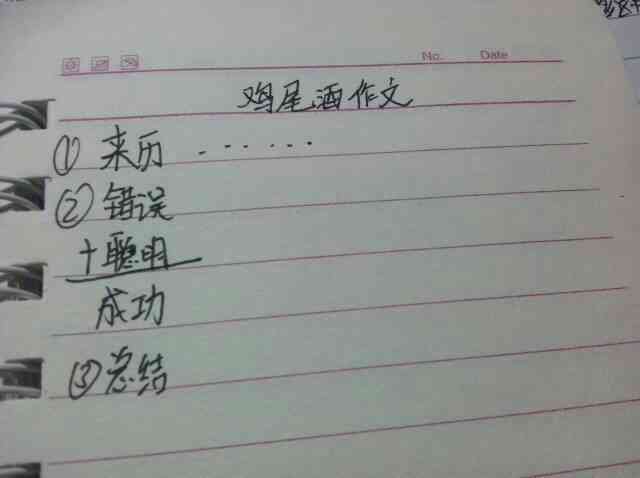 No. Date
鸡尾酒作文
① 来历 ......
② 错误
+聪明
成功
③ 总结